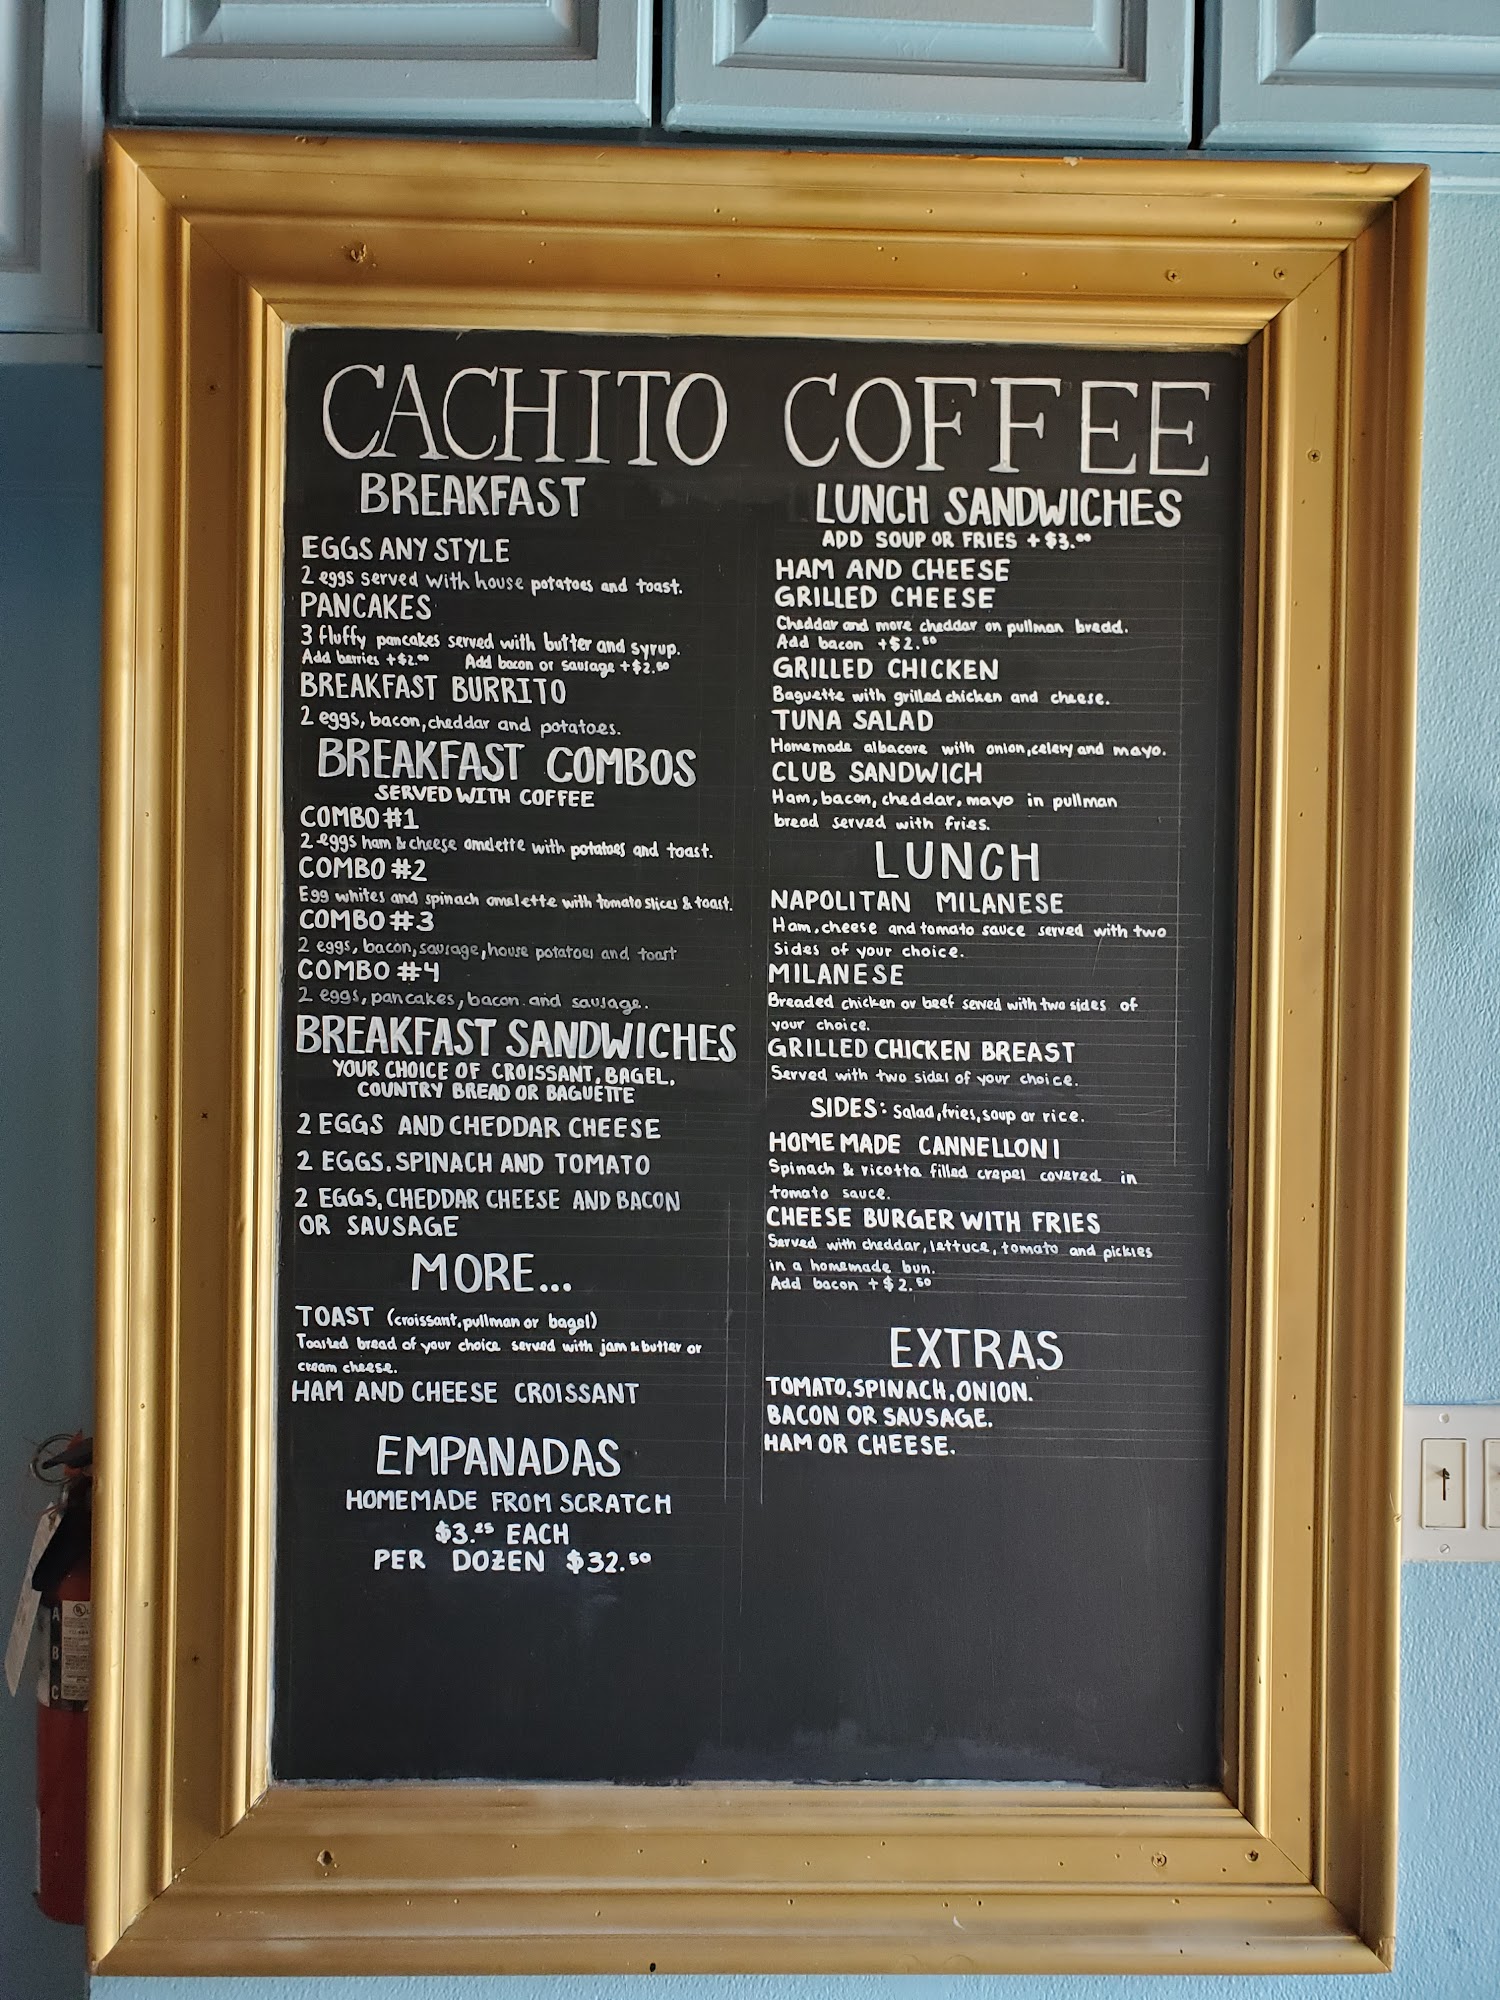 CACHITO COFFEE
BREAKFAST
EGGS ANY STYLE
2 eggs served with house potatoes and toast.
PANCAKES
3 fluffy pancakes served with butter and syrup.
Add berries +$2.00 Add bacon or sausage +$2.50
BREAKFAST BURRITO
2 eggs, bacon, cheddar and potatoes.
BREAKFAST COMBOS
SERVED WITH COFFEE
COMBO #1
2 eggs ham & cheese omelette with potatoes and toast.
COMBO #2
Egg whites and spinach omelette with tomato slices & toast.
COMBO #3
2 eggs, bacon, sausage, house potatoes and toast
COMBO #4
2 eggs, pancakes, bacon and sausage.
BREAKFAST SANDWICHES
YOUR CHOICE OF CROISSANT, BAGEL,
COUNTRY BREAD OR BAGUETTE
2 EGGS AND CHEDDAR CHEESE
2 EGGS, SPINACH AND TOMATO
2 EGGS, CHEDDAR CHEESE AND BACON
OR SAUSAGE
MORE...
TOAST (croissant, pullman or bagel)
Toasted bread of your choice served with jam & butter or
cream cheese.
HAM AND CHEESE CROISSANT
EMPANADAS
HOMEMADE FROM SCRATCH
$3.25 EACH
PER DOZEN $32.50
LUNCH SANDWICHES
ADD SOUP OR FRIES +$3.00
HAM AND CHEESE
GRILLED CHEESE
Cheddar and more cheddar on pullman bread.
Add bacon +$2.50
GRILLED CHICKEN
Baguette with grilled chicken and cheese.
TUNA SALAD
Homemade albacore with onion, celery and mayo.
CLUB SANDWICH
Ham, bacon, cheddar, mayo in pullman
bread served with fries.
LUNCH
NAPOLITAN MILANESE
Ham, cheese and tomato sauce served with two
sides of your choice.
MILANESE
Breaded chicken or beef served with two sides of
your choice.
GRILLED CHICKEN BREAST
Served with two sides of your choice.
SIDES: Salad, fries, soup or rice.
HOMEMADE CANNELLONI
Spinach & ricotta filled crepel covered in
tomato sauce.
CHEESE BURGER WITH FRIES
Served with cheddar, lettuce, tomato and pickles
in a homemade bun.
Add bacon +$2.50
EXTRAS
TOMATO, SPINACH, ONION.
BACON OR SAUSAGE.
HAM OR CHEESE.
A
B
C